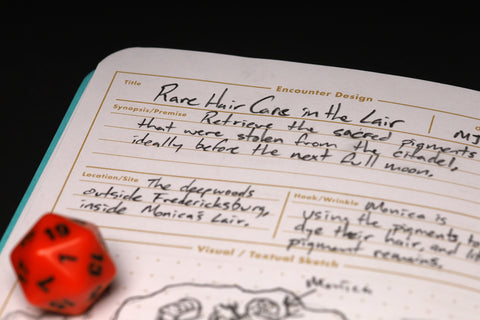 Encounter Design
Title Rare Hair Care in the Lair
MJ
Synopsis/Premise Retrieve the sacred pigments
that were stolen from the citadel,
ideally before the next full moon.
Location/Site The deepwoods
outside Fredericksburg,
inside Monica's Lair.
Hook/Wrinkle Monica is
using the pigments to
dye their hair, and
pigment remains.
Visual / Textual Sketch
Monica
10
1